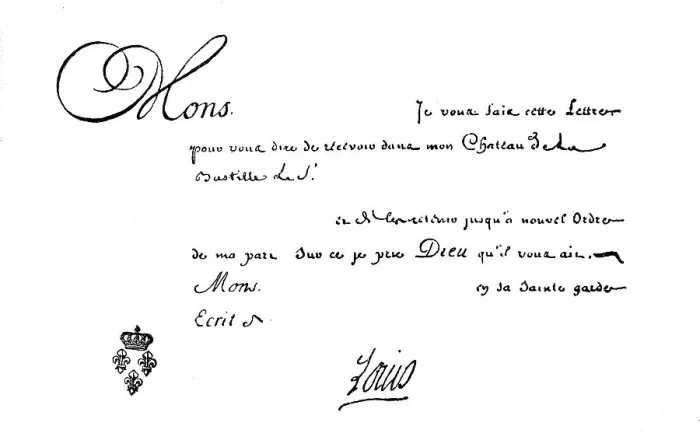 Mons. Je vous fais cette Lettre
pour vous dire de recevoir dans mon Chateau de La
Bastille Le S.r
et de les retenir jusqu'à nouvel Ordre
de ma part. Sur ce je prie Dieu qu'il vous ait,
Mons. en sa Sainte garde
Ecrit a
Louis